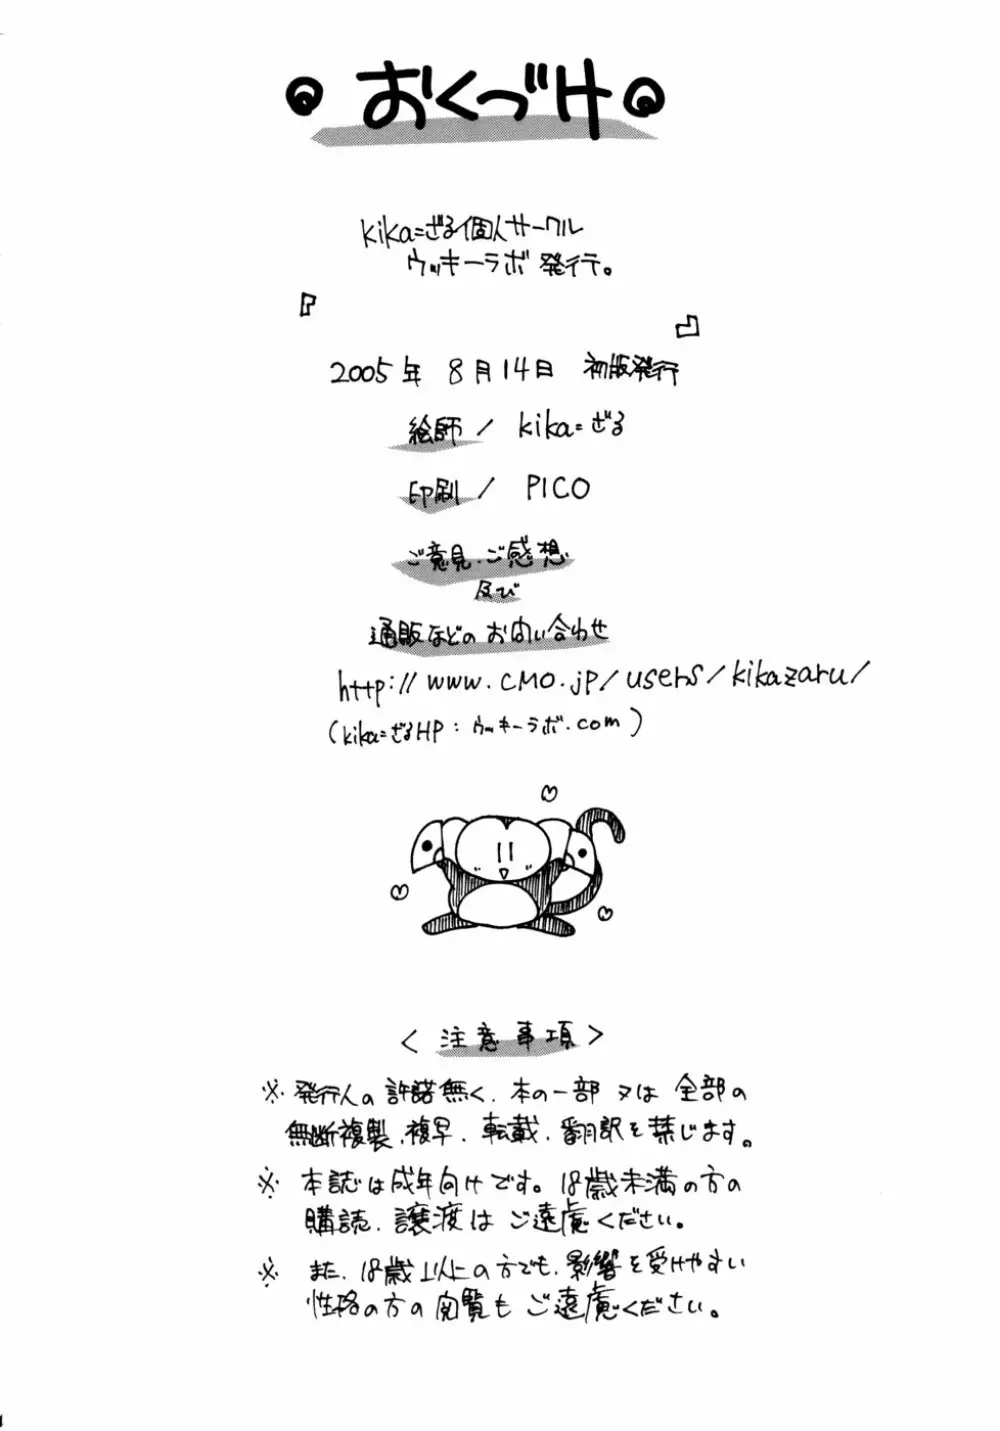 おくづけ
kika=ざる個人サークル
ウッキーラボ 発行。
『
』
2005年 8月14日 初版発行
絵師 / kika=ざる
印刷 / PICO
ご意見、ご感想
及び
通販などの お問い合わせ
http://www.cmo.jp/users/kikazaru/
(kika=ざるHP：ウッキーラボ.com)
＜ 注意事項 ＞
※ 発行人の 許諾無く、本の一部 又は 全部の
無断複製、複写、転載、翻訳を禁じます。
※ 本誌は成年向けです。18歳未満の方の
購読、譲渡は ご遠慮ください。
※ また、18歳以上の方でも、影響を受けやすい
性格の方の閲覧も ご遠慮ください。